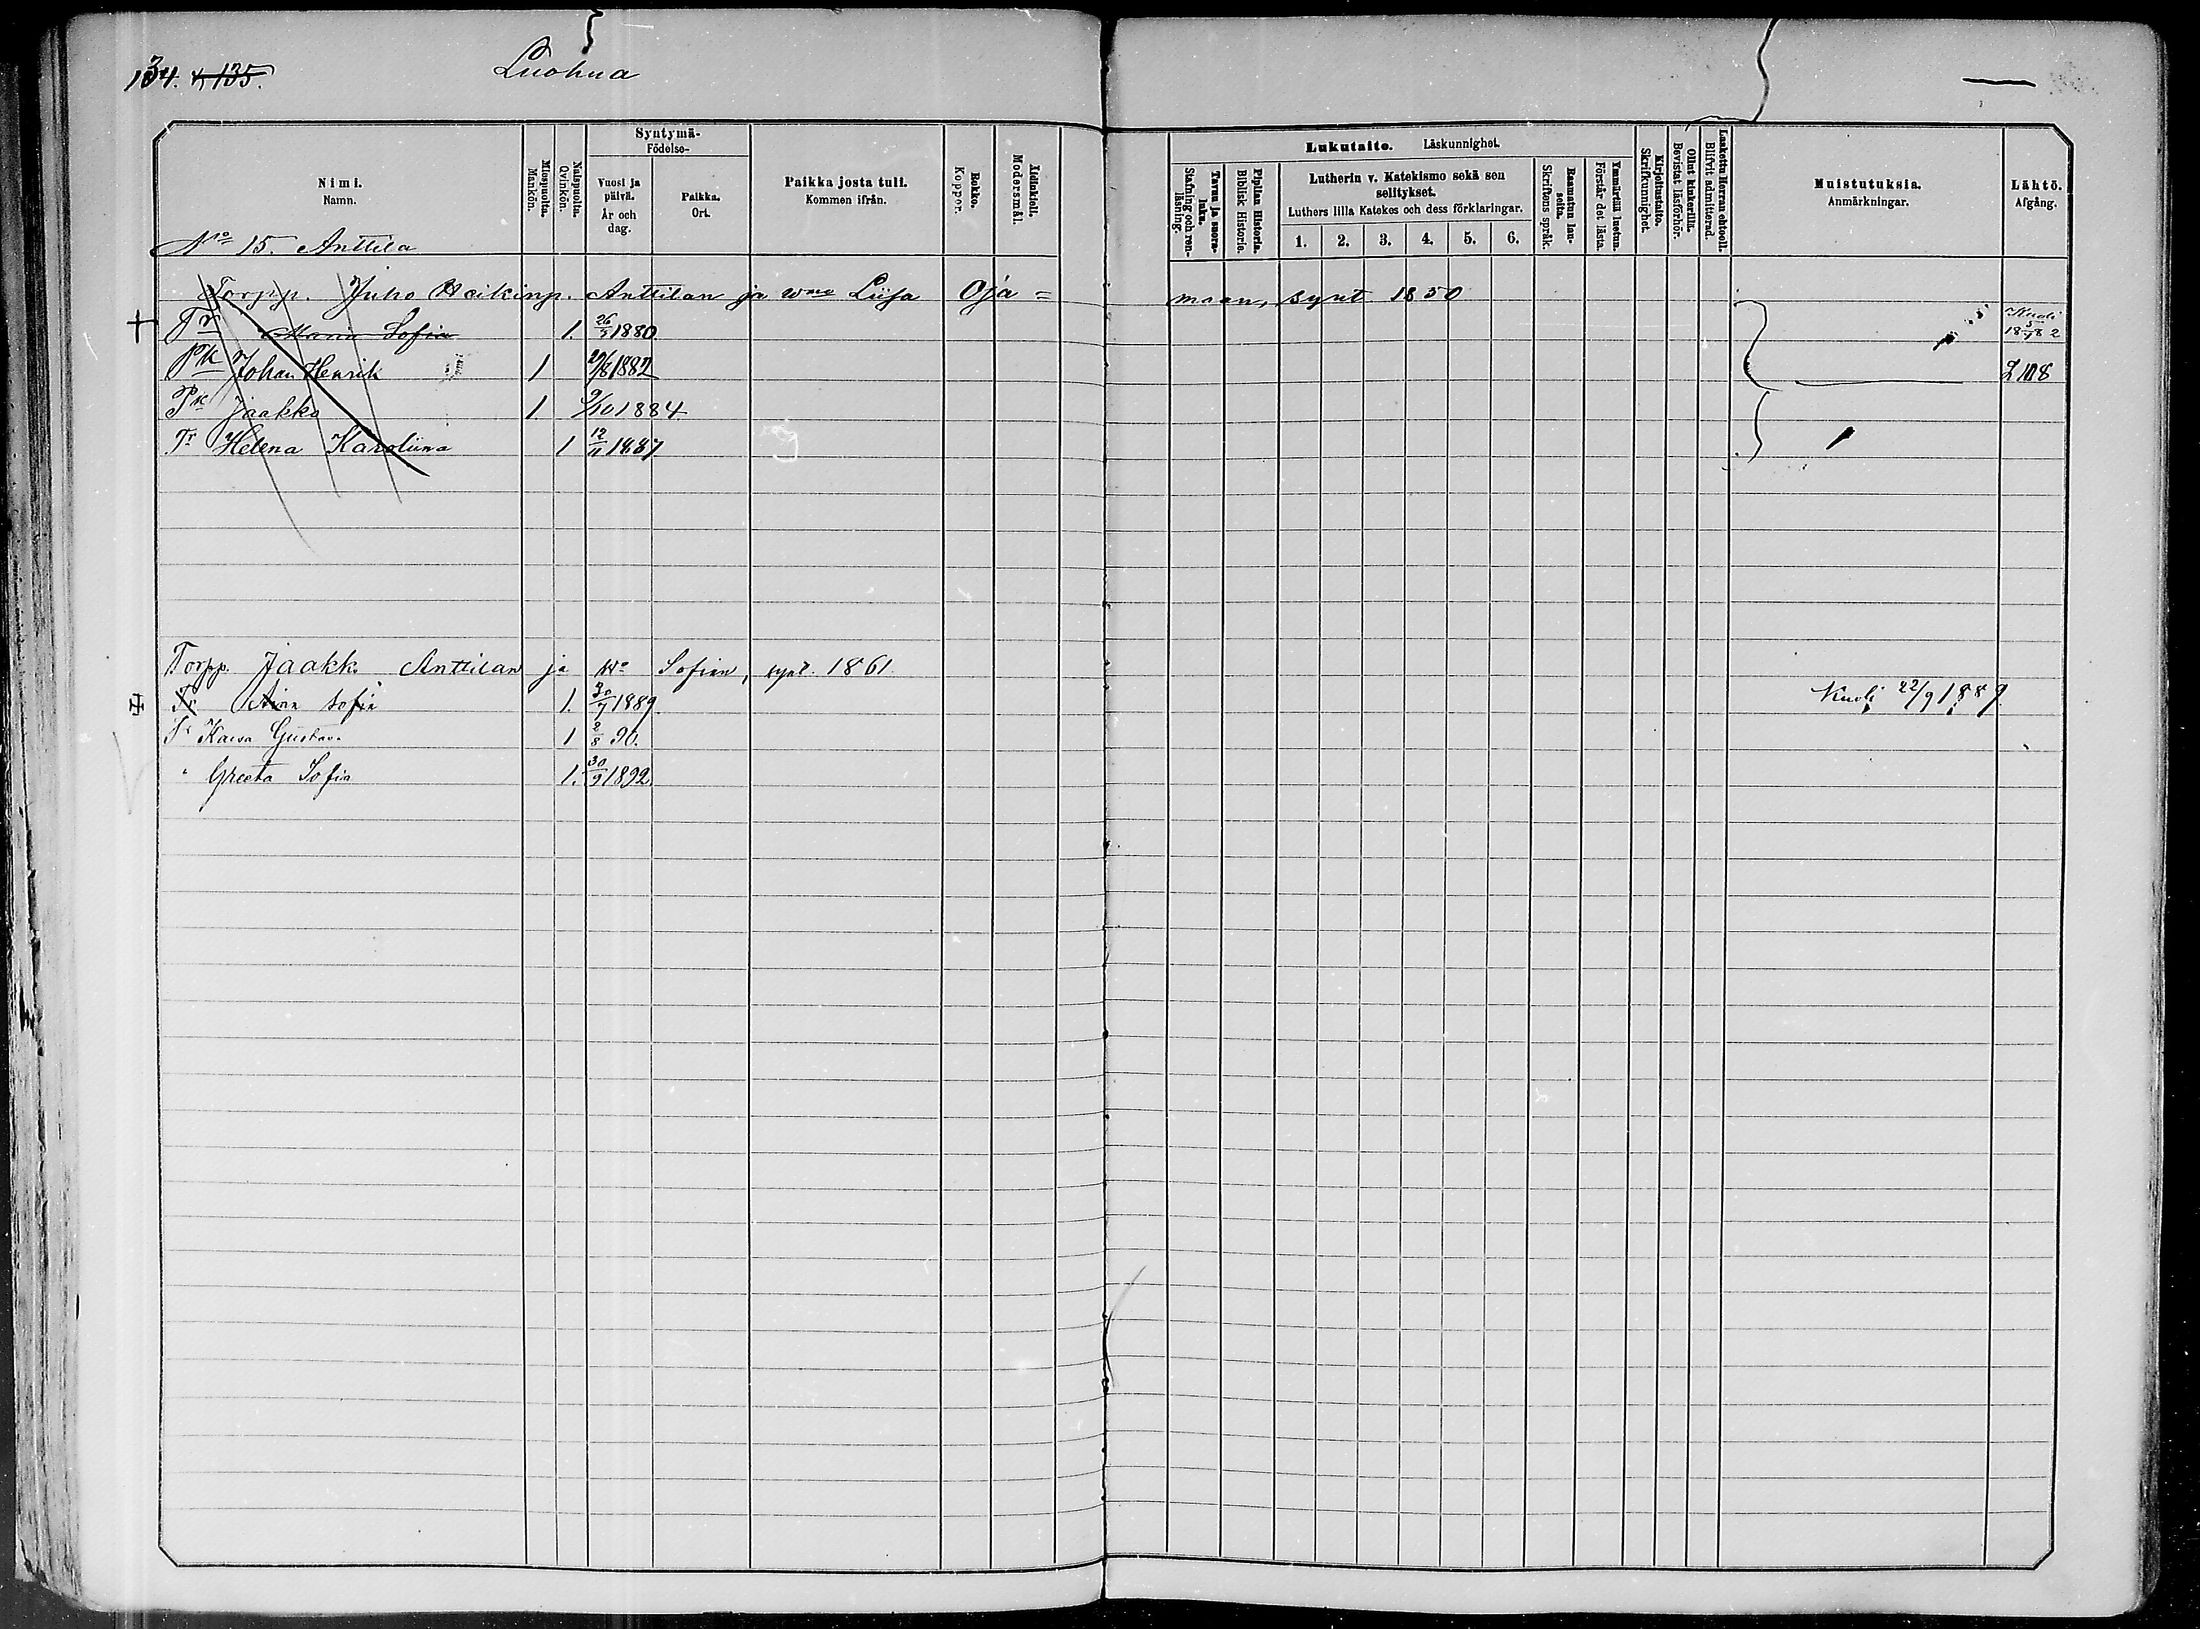 134. & 135.
Luohua
Nimi.
Namn.
Miespuolta.
Mankön.
Naispuolta.
Qvinkön.
Syntymä-
Födelse-
Vuosi ja päivä.
År och dag.
Paikka.
Ort.
Paikka josta tuli.
Kommen ifrån.
Rokko.
Koppor.
Kotikieli.
Modersmål.
Tavuu ja suora-luku.
Stafning och ren-läsning.
Piplian Historia.
Biblisk Historie.
Lukutaito. Läskunnighet.
Lutherin v. Katekismo sekä sen
selitykset.
Luthers lilla Katekes och dess förklaringar.
1. 2. 3. 4. 5. 6.
Raamatun lau-seita.
Skriftens språk.
Ymmärtää luetun.
Förstår det lästa.
Kirjoitustaito.
Skrifkunnighet.
Ollut kinkerillä.
Bevistat läsförhör.
Laskettu Herran ehtool.
Blifvit admitterad.
Muistutuksia.
Anmärkningar.
Lähtö.
Afgång.
No 15. Anttila
Torpp. Juho Heikinp. Anttilan ja wmo Liisa Oja = maan, synt 1850
Tr Maria Sofia 1. 26/5 1880 Kuoli 18 5/7 82
Pk Johan Henrik 1 29/8 1882 L 118
Pk Jaakko 1 9/10 1884
Tr Helena Karoliina 1 12/11 1887
Torpp. Jaakk Anttilan ja wo Sofian, synt. 1861.
Tr Aina Sofia 1. 30/7 1889 Kuoli 22/9 1889
Tr Kaisa Gustava 1 2/8 90.
" Greeta Sofia 1. 30/9 1892.